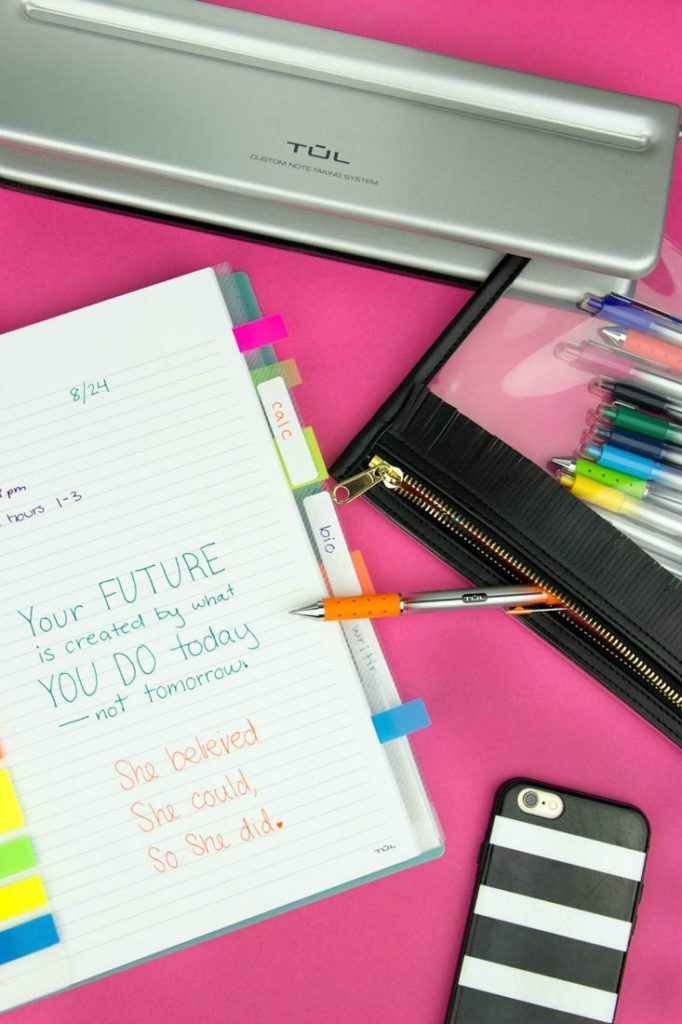 TUL
CUSTOM NOTE-TAKING SYSTEM
8/24
calc
pm
hours 1-3
bio
Your FUTURE
is created by what
YOU DO today
—not tomorrow.
TUL
She believed
She could,
So she did.
TUL